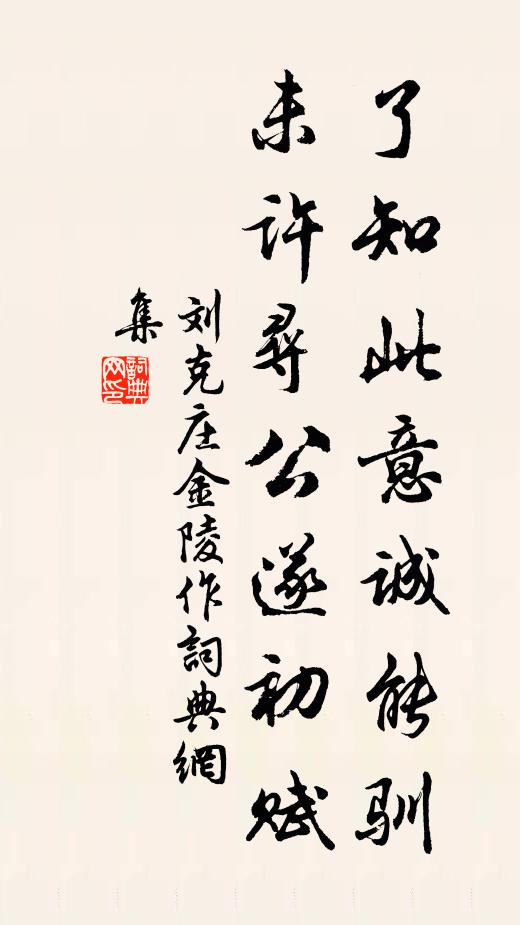 了知此意诚能驯
未许寻公遂初赋
刘克庄金陵作詞典網
集
詞典
网印